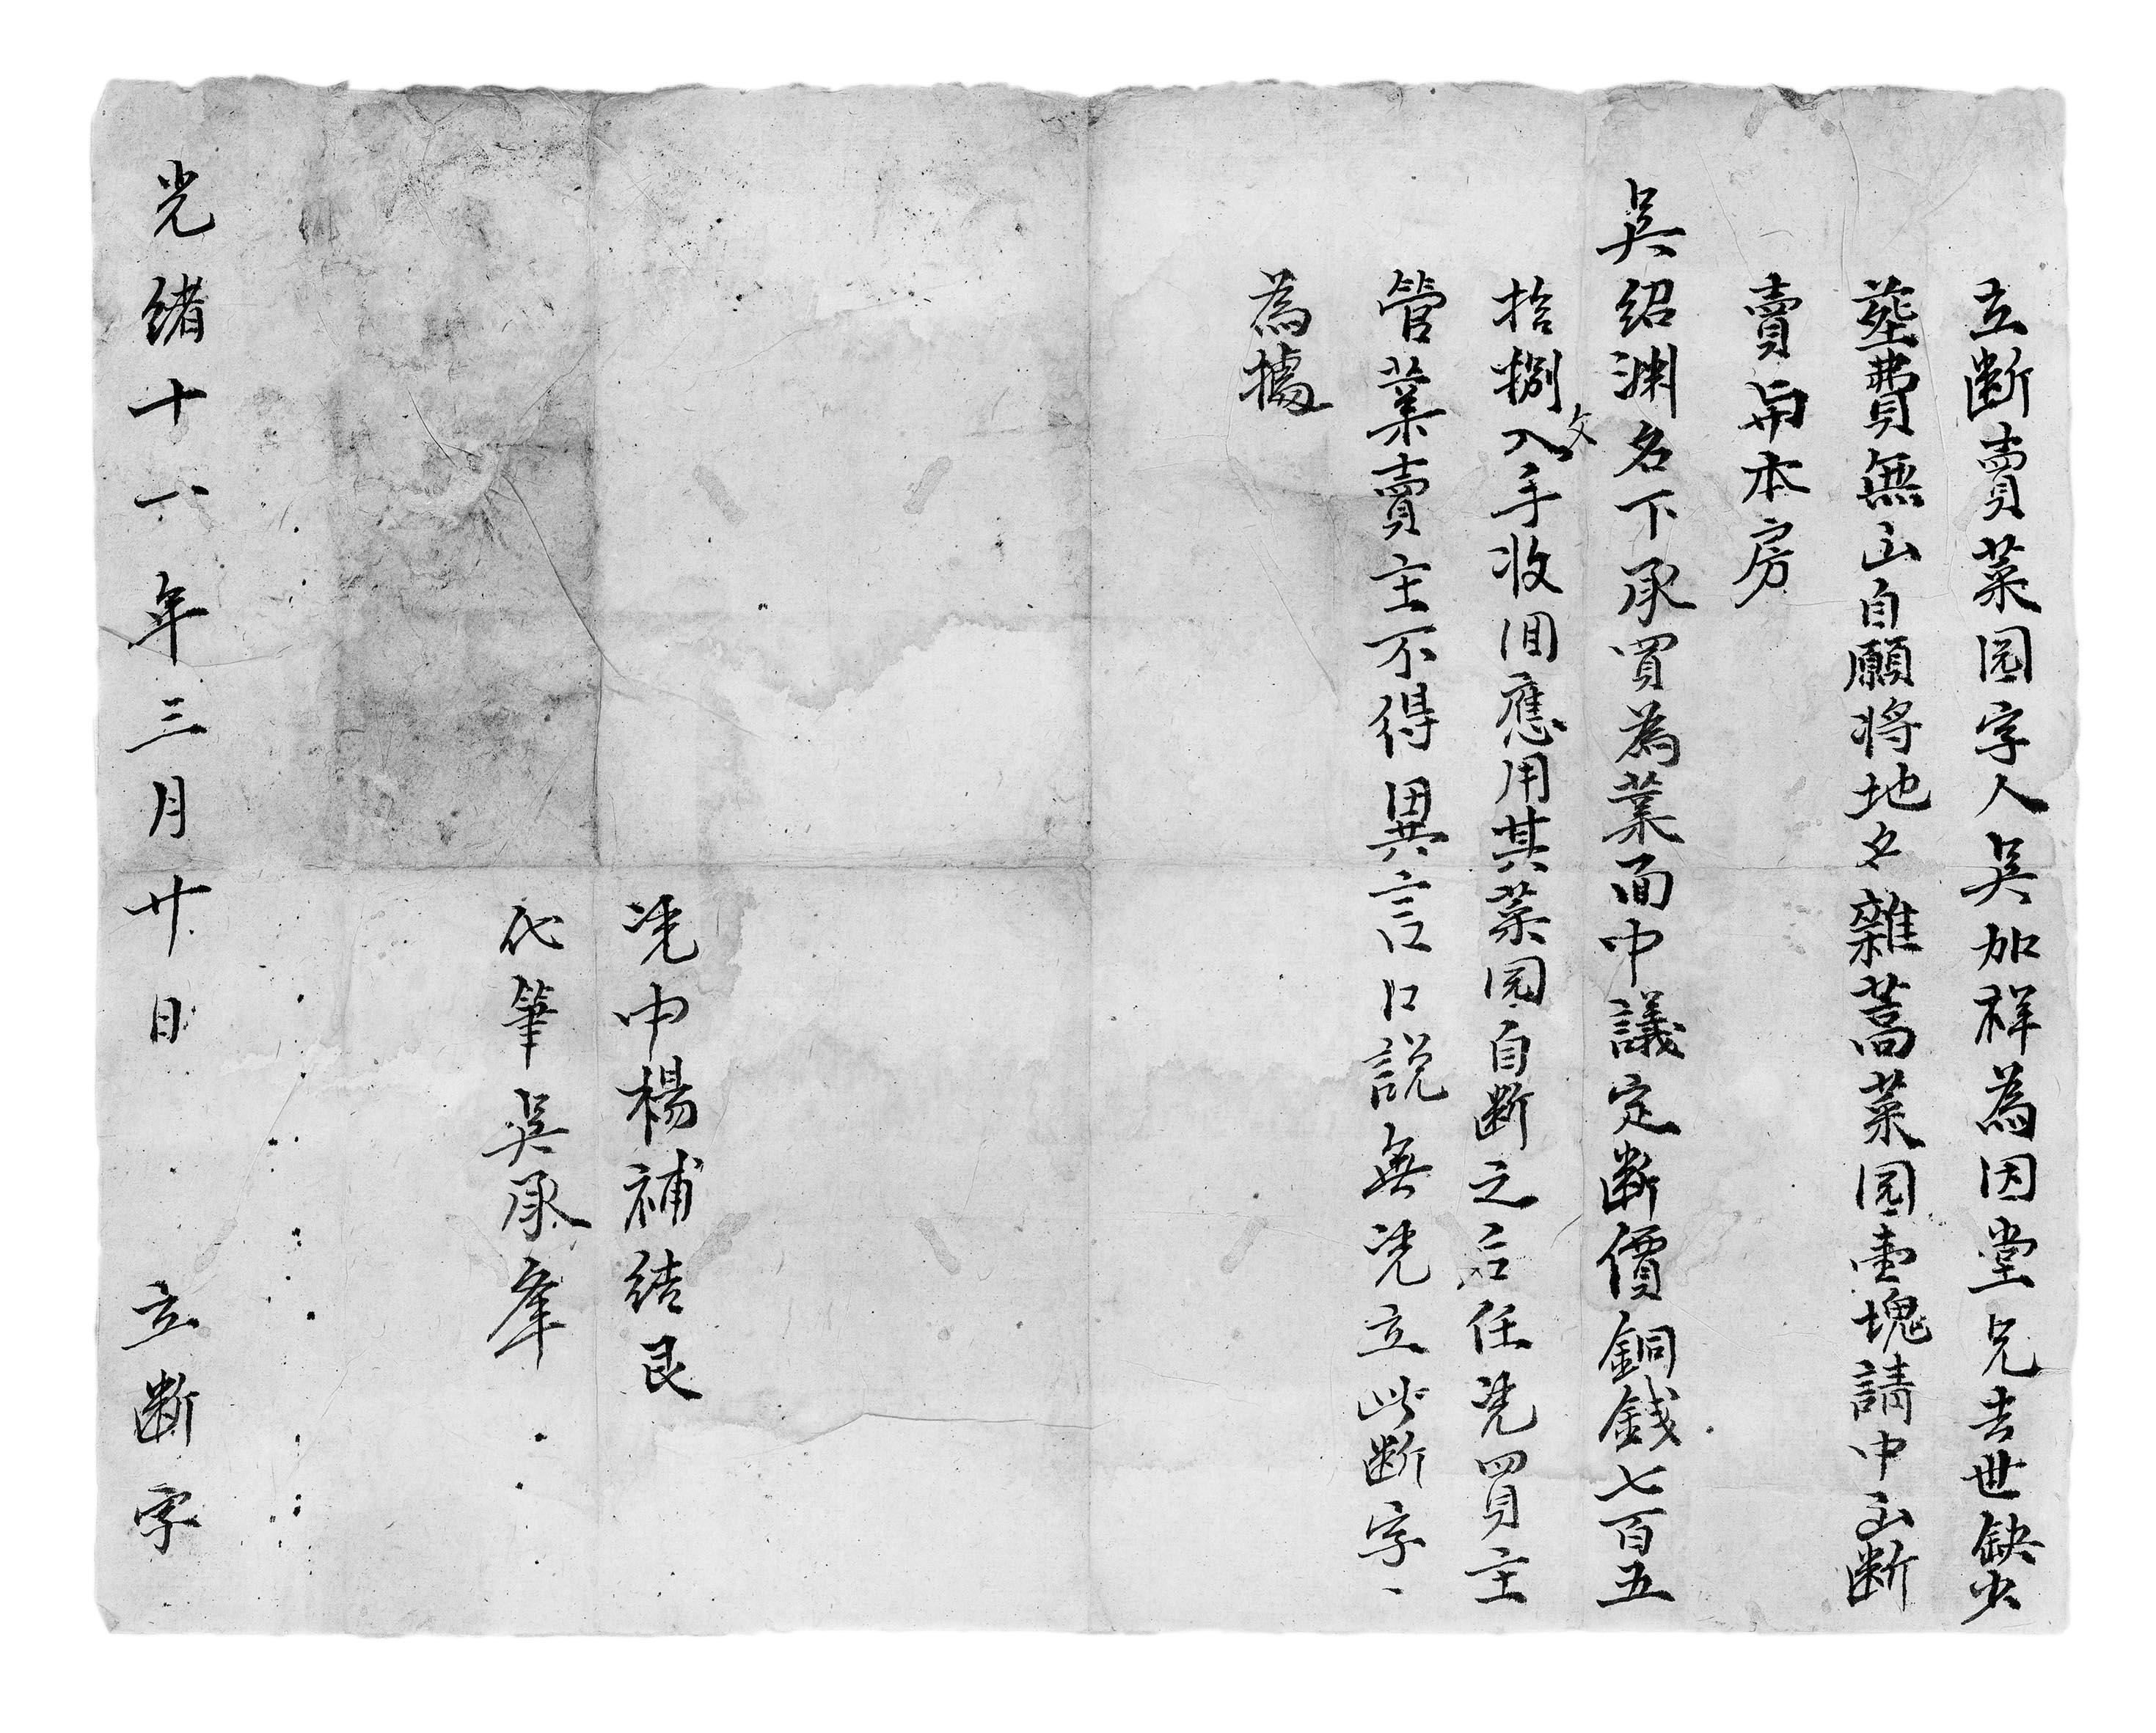 立断賣菜园字人吳加祥為因堂兄去世缺少
塟費無出自願将地名雜蒿菜园壹塊請中出断
賣与本房
吳紹渊名下承買為業面中議定断價銅錢七百五
拾捌文入手收回應用其菜园自断之后任凴買主
管業賣主不得異言口說無凴立此断字
為據
凴中楊補結艮
代筆吳承峯
光緒十一年三月廿日 立断字